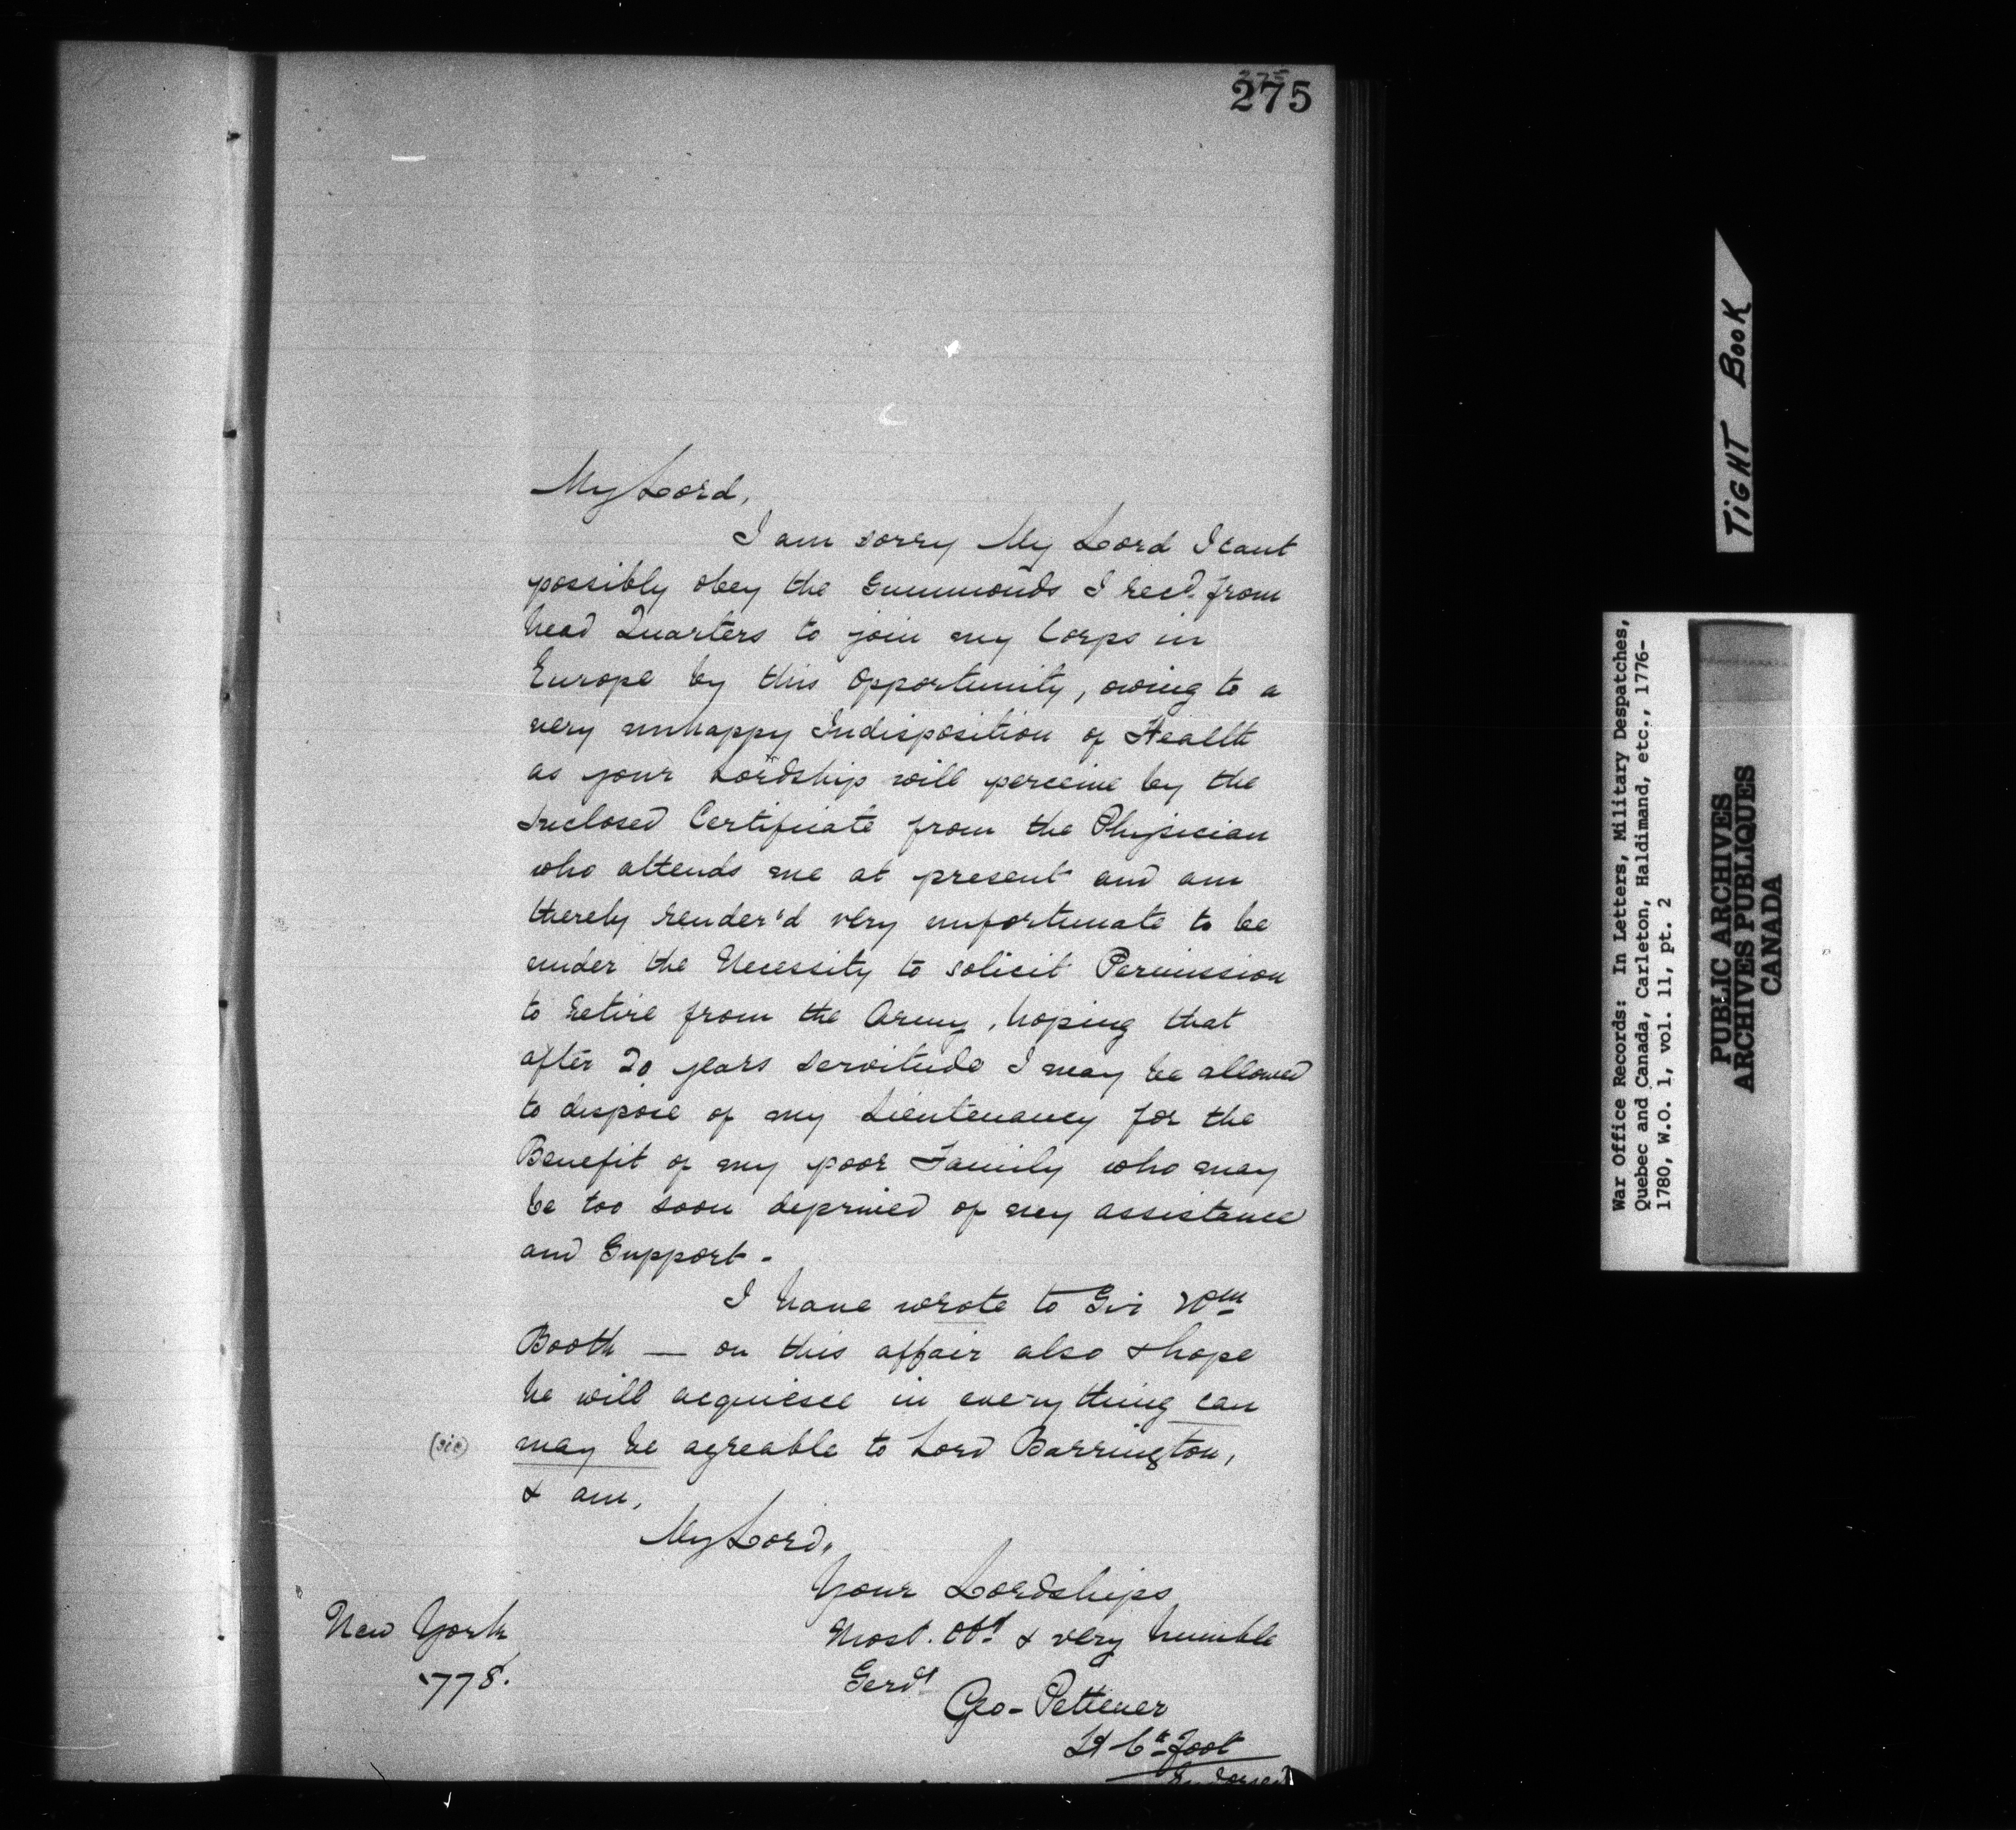 275
275
My Lord,
I am sorry My Lord I cant
possibly obey the Summonds I recd. from
head Quarters to join my Corps in
Europe by this Opportunity, owing to a
very unhappy Indisposition of Health
as your Lordship will perceive by the
Inclosed Certificate from the Physician
who attends me at present and am
therely render'd very unfortunate to be
under the Necessity to solicit Permission
to retire from the Army, hoping that
after 20 years Servitude I may be allowed
to dispose of my Lieutenancy for the
Benefit of my poor Family who may
be too soon deprived of my assistance
and Support.
I have wrote to Sir Wm
Booth — on this affair also & hope
he will acquiesce in everything can
(sic) may be agreable to Lord Barrington,
& am,
My Lord,
Your Lordships
Most. Obt. & very humble
Servt
Geo - Pettener
Lt 6th Foot
Endorsed
New York
1778.
TIGHT BOOK
War Office Records: In Letters, Military Despatches,
Quebec and Canada, Carleton, Haldimand, etc., 1776-
1780, W.O. 1, vol. 11, pt. 2
PUBLIC ARCHIVES
ARCHIVES PUBLIQUES
CANADA